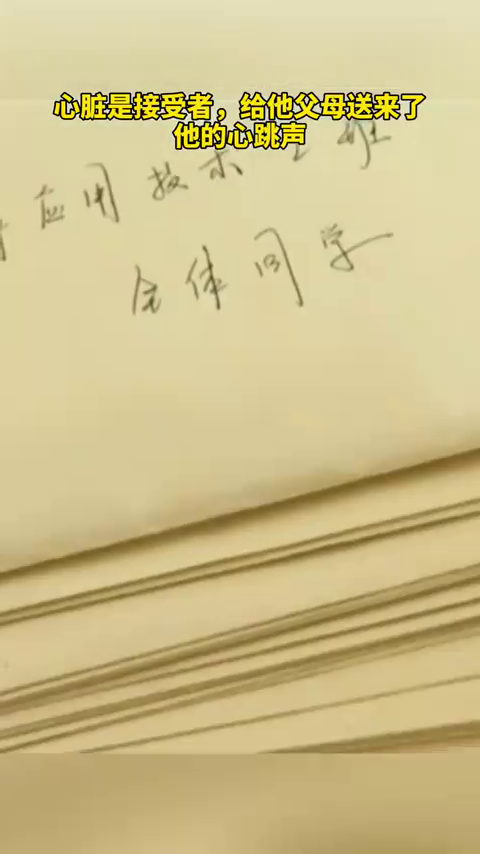 心脏是接受者，给他父母送来了
他的心跳声
应用技术 班
全体同学